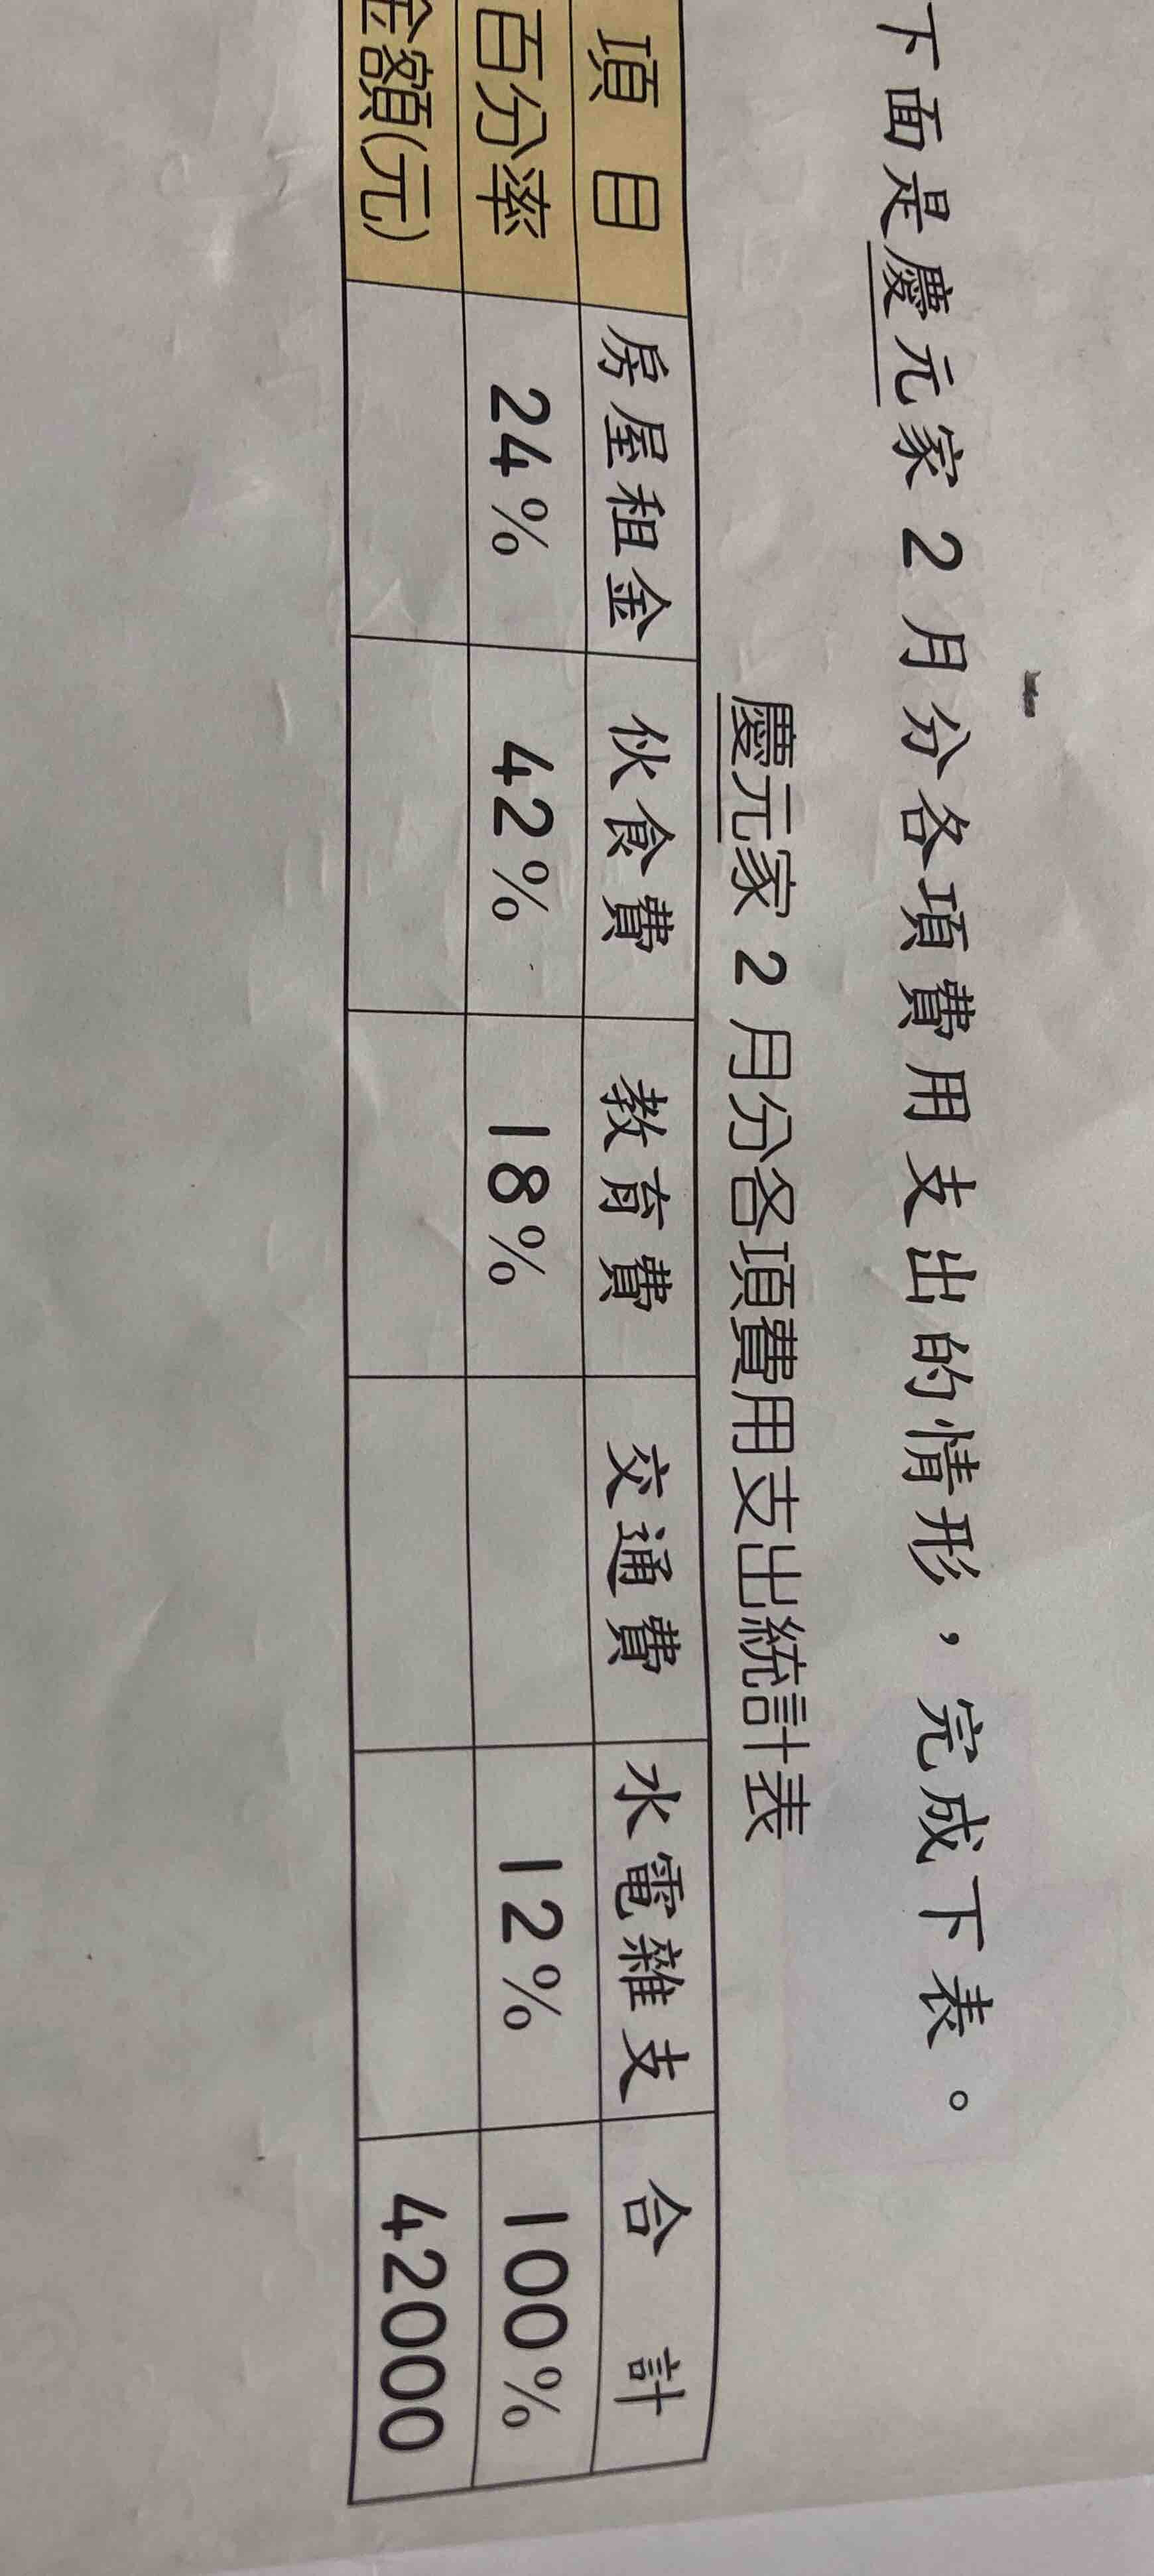 下面是慶元家2月分各項費用支出的情形，完成下表。
慶元家2月分各項費用支出統計表
項目 房屋租金 伙食費 教育費 交通費 水電雜支 合計
百分率 24% 42% 18% 12% 100%
金額(元) 42000